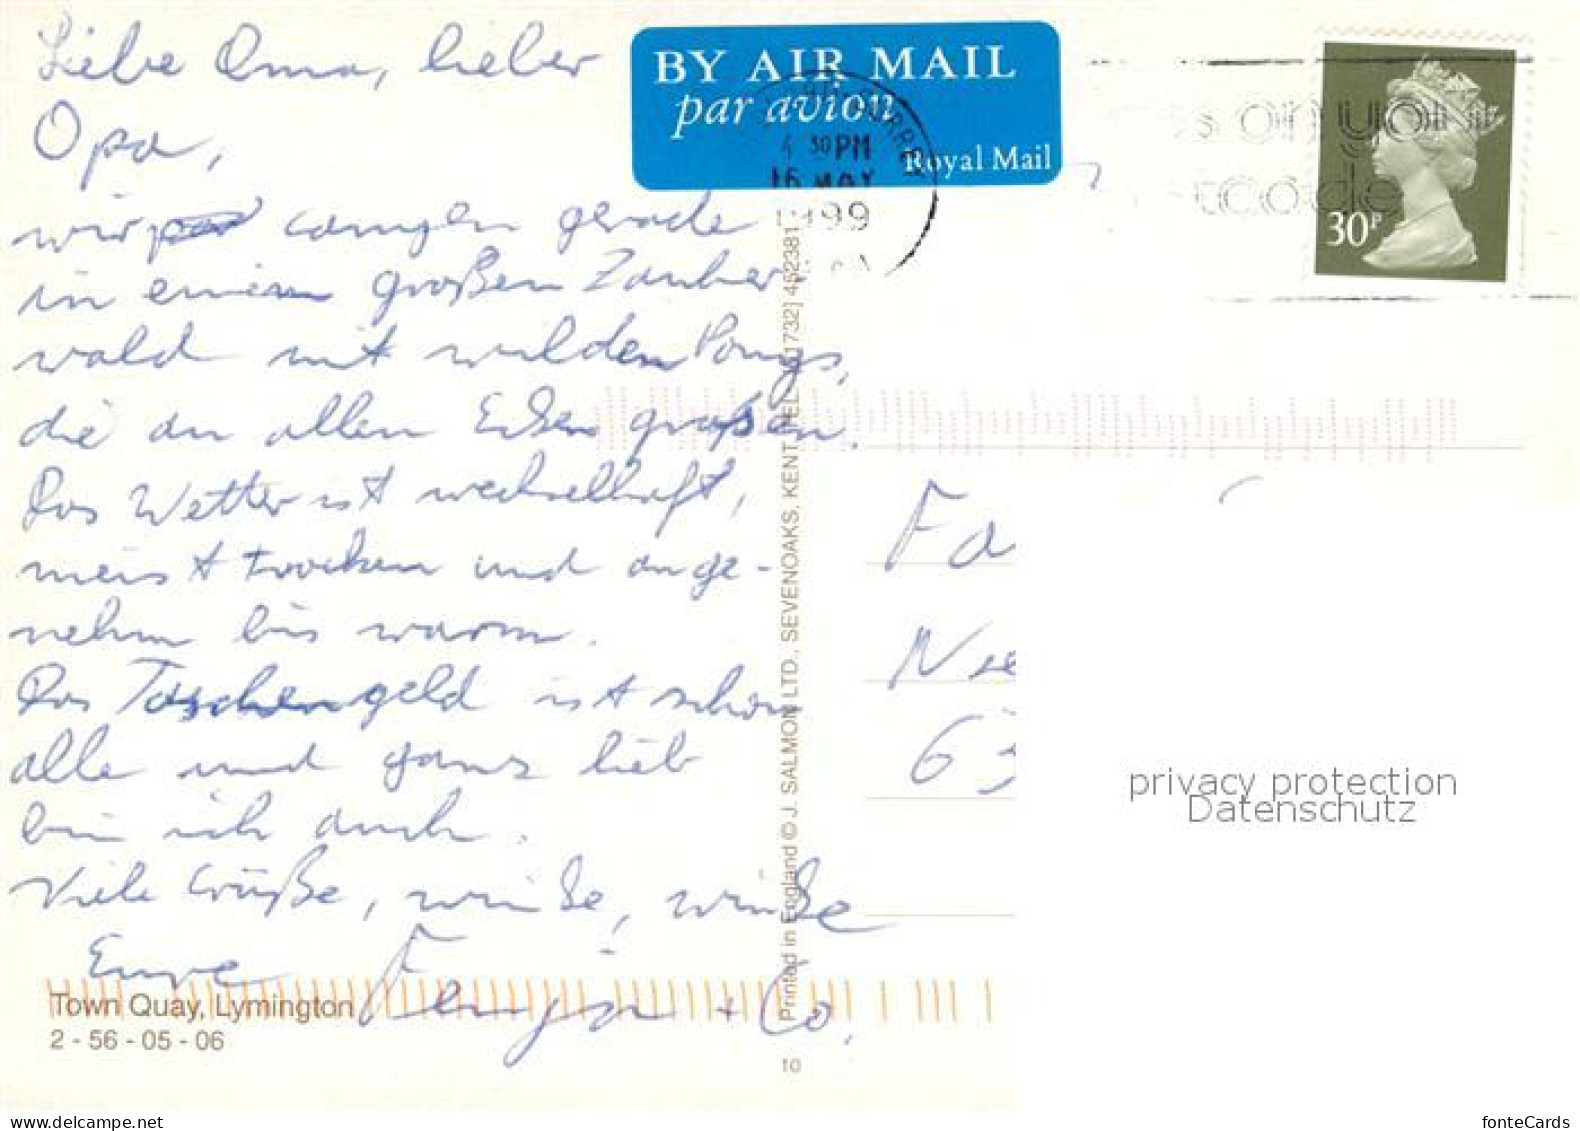 Liebe Oma, lieber
Opa,
wir campen gerade
in einem großen Zauber
wald mit wilden Ponys,
die an allen Ecken grasen.
Das Wetter ist wechselhaft,
meist trocken und ange-
nehm bis warm.
Das Taschengeld ist schon
alle und ganz lieb
bin ich auch.
Viele Grüße, winke, winke
Eure Fenja + Co.
Town Quay, Lymington
2 - 56 - 05 - 06
BY AIR MAIL
par avion
Royal Mail
4 30PM
16 MAY
1999
30P
Printed in England © J. SALMON LTD., SEVENOAKS, KENT [TEL. (01732) 452381]
10
Fa
Nie
63
privacy protection
Datenschutz
www.delcampe.net
fonteCards